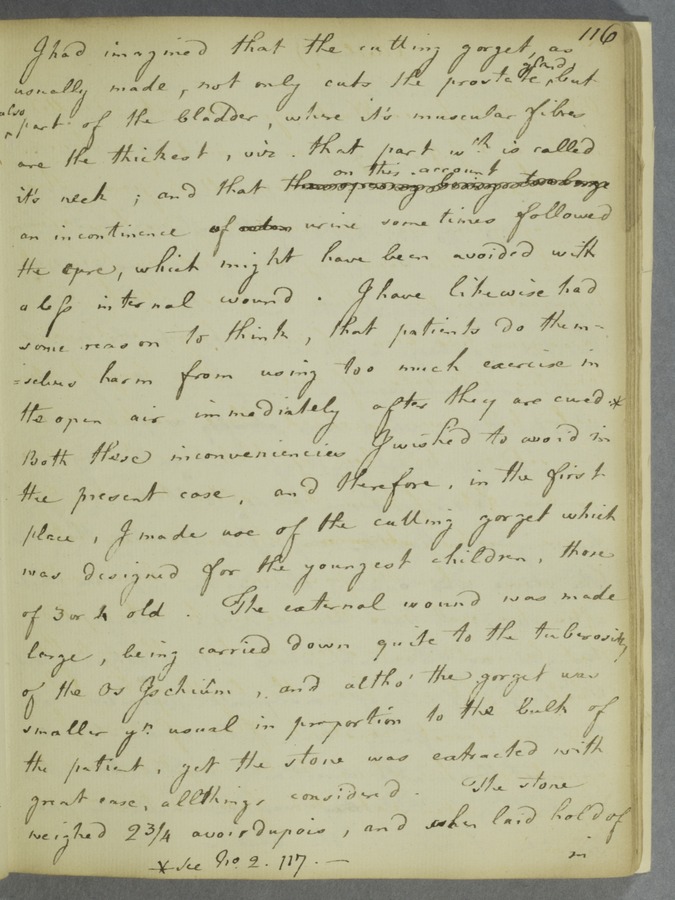 116
I had imagined that the cutting gorget, as
usually made, not only cuts the prostate gland, but
also part of the bladder, where it's muscular fibres
are the thickest, viz. that part wch. is called
it's neck; and that on this account
an incontinence of urine sometimes followed
the cure, which might have been avoided with
a less internal wound. I have likewise had
some reason to think, that patients do them-
=selves harm from using too much exercise in
the open air immediately after they are cured.*
Both these inconveniencies I wished to avoid in
the present case, and therefore, in the first
place, I made use of the cutting gorget which
was designed for the youngest children, those
of 3 or 4 old. The external wound was made
large, being carried down quite to the tuberosity
of the Os Ischium, and altho' the gorget was
smaller yn. usual in proportion to the bulk of
the patient, yet the stone was extracted with
great ease, all things considered. The stone
weighed 2 3/4 avoirdupois, and when laid hold of
in
* see No. 2. 117. —